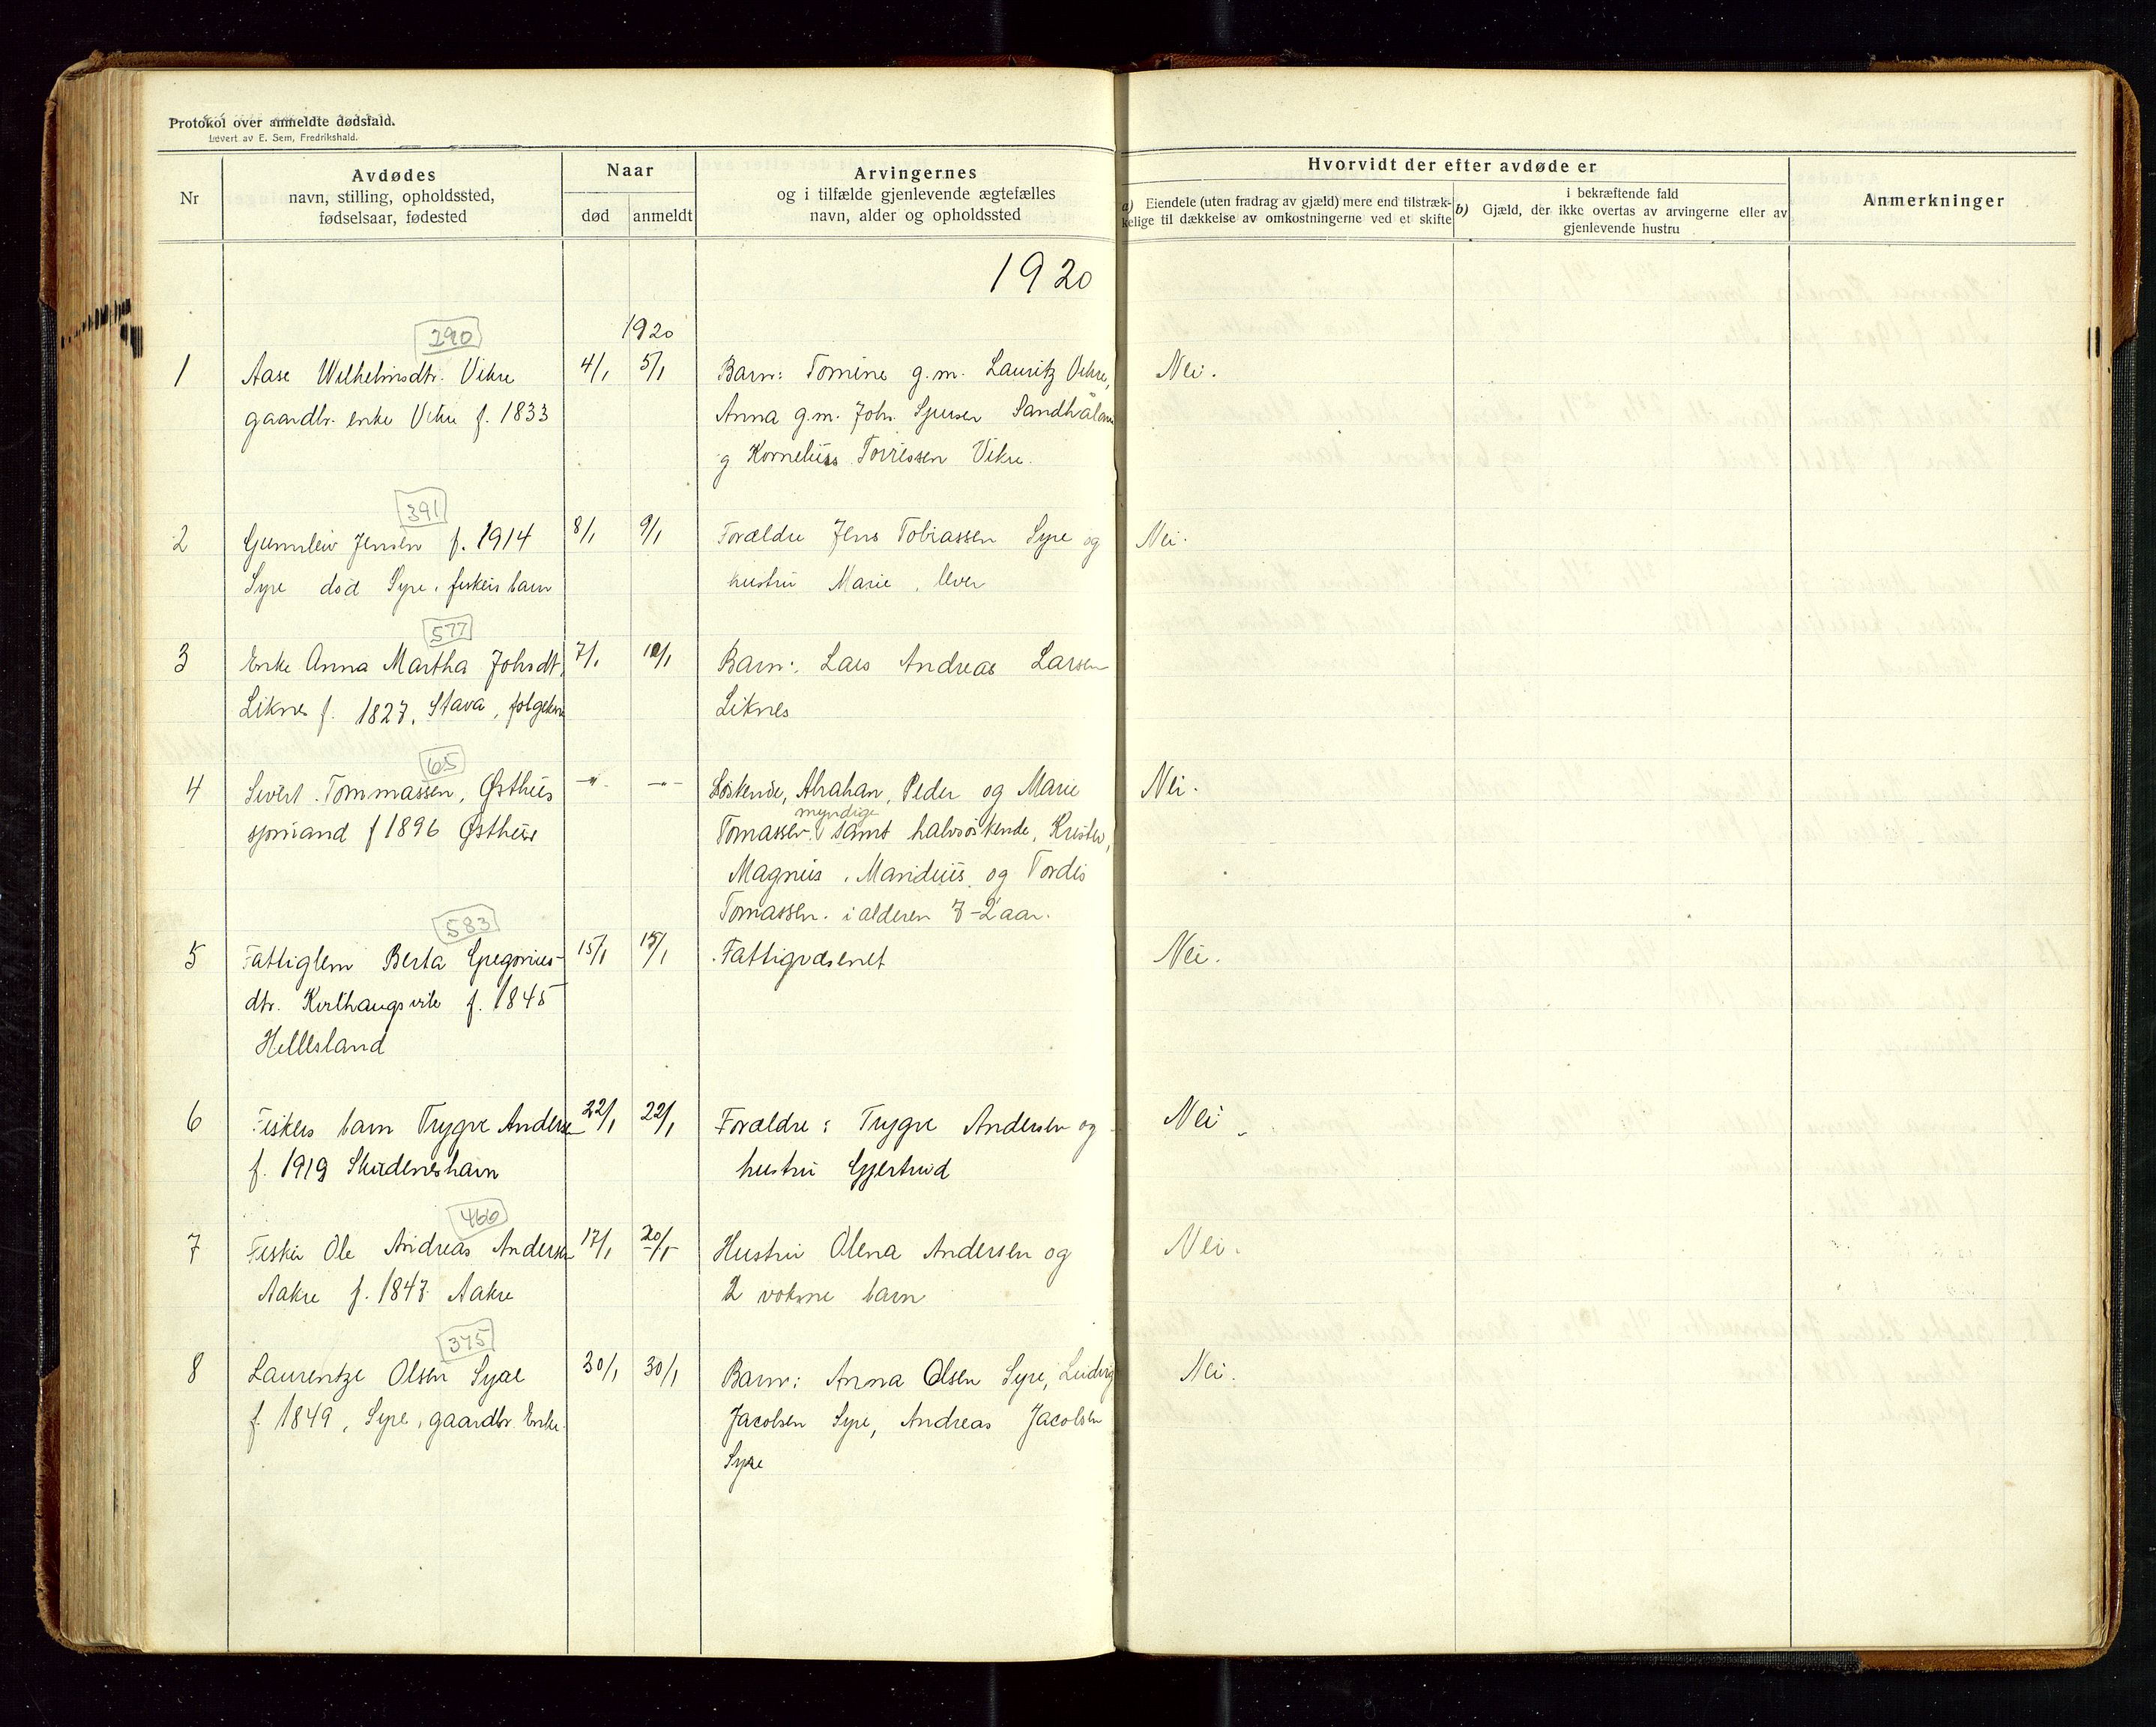 Protokol over anmeldte dødsfald.
Levert av E. Sem, Fredrikshald.
Nr
Avdødes
navn, stilling, opholdssted,
fødselsaar, fødested
Naar
død
anmeldt
Arvingernes
og i tilfælde gjenlevende ægtefælles
navn, alder og opholdssted
Hvorvidt der efter avdøde er
a) Eiendele (uten fradrag av gjæld) mere end tilstræk-
kelige til dækkelse av omkostningerne ved et skifte
i bekræftende fald
b) Gjæld, der ikke overtas av arvingerne eller av
gjenlevende hustru
Anmerkninger
1920
1920
290
1 Aase Wilhelmsdtr. Vikre 4/1 5/1 Barn: Tomine g.m. Lauritz Vikre, Nei.
gaardbr. enke Vikre f. 1833 Anna g.m. Johs. Sjursen Sandhåland
g Kornelius Torressen Vikre.
391
2 Gunnleiv Jensen f. 1914 8/1 9/1 Forældre Jens Tobiassen Syre og Nei.
Syre død Syre, fiskers barn hustru Marie, lever
577
3 Enke Anna Martha Johsdt. 7/1 10/1 Barn: Lars Andreas Larsen
Liknes f. 1827, Stava, folgekone Liknes
65
4 Sivert Tommassen, Østhus -"- -"- Søskende, Abrahan, Peder og Marie Nei.
myndige
sjømand f 1896 Østhus Tomassen. samt halvsøskende, Kristen,
Magnus, Mandius og Tordis
Tomassen. i alderen 7-2 aar.
583
5 Fattiglem Berta Gregorius- 15/1 15/1 Fattigvæsenet Nei.
dtr. f. 1845
Hellesland
6 Fiskers barn Trygve Andersen 22/1 22/1 Forældre: Trygve Andersen og Nei
f. 1919 Skudeneshavn hustru Gjertrud
466
7 Fisker Ole Andreas Andersen 17/1 20/1 Hustru Olena Andersen og Nei.
Aakre f. 1847 Aakre 2 voksne barn
375
8 Laurentze Olsen Syre 30/1 30/1 Barn: Anna Olsen Syre, Ludvig Nei.
f. 1849, Syre, gaardbr. Enke. Jacobsen Syre, Andreas Jacobsen
Syre